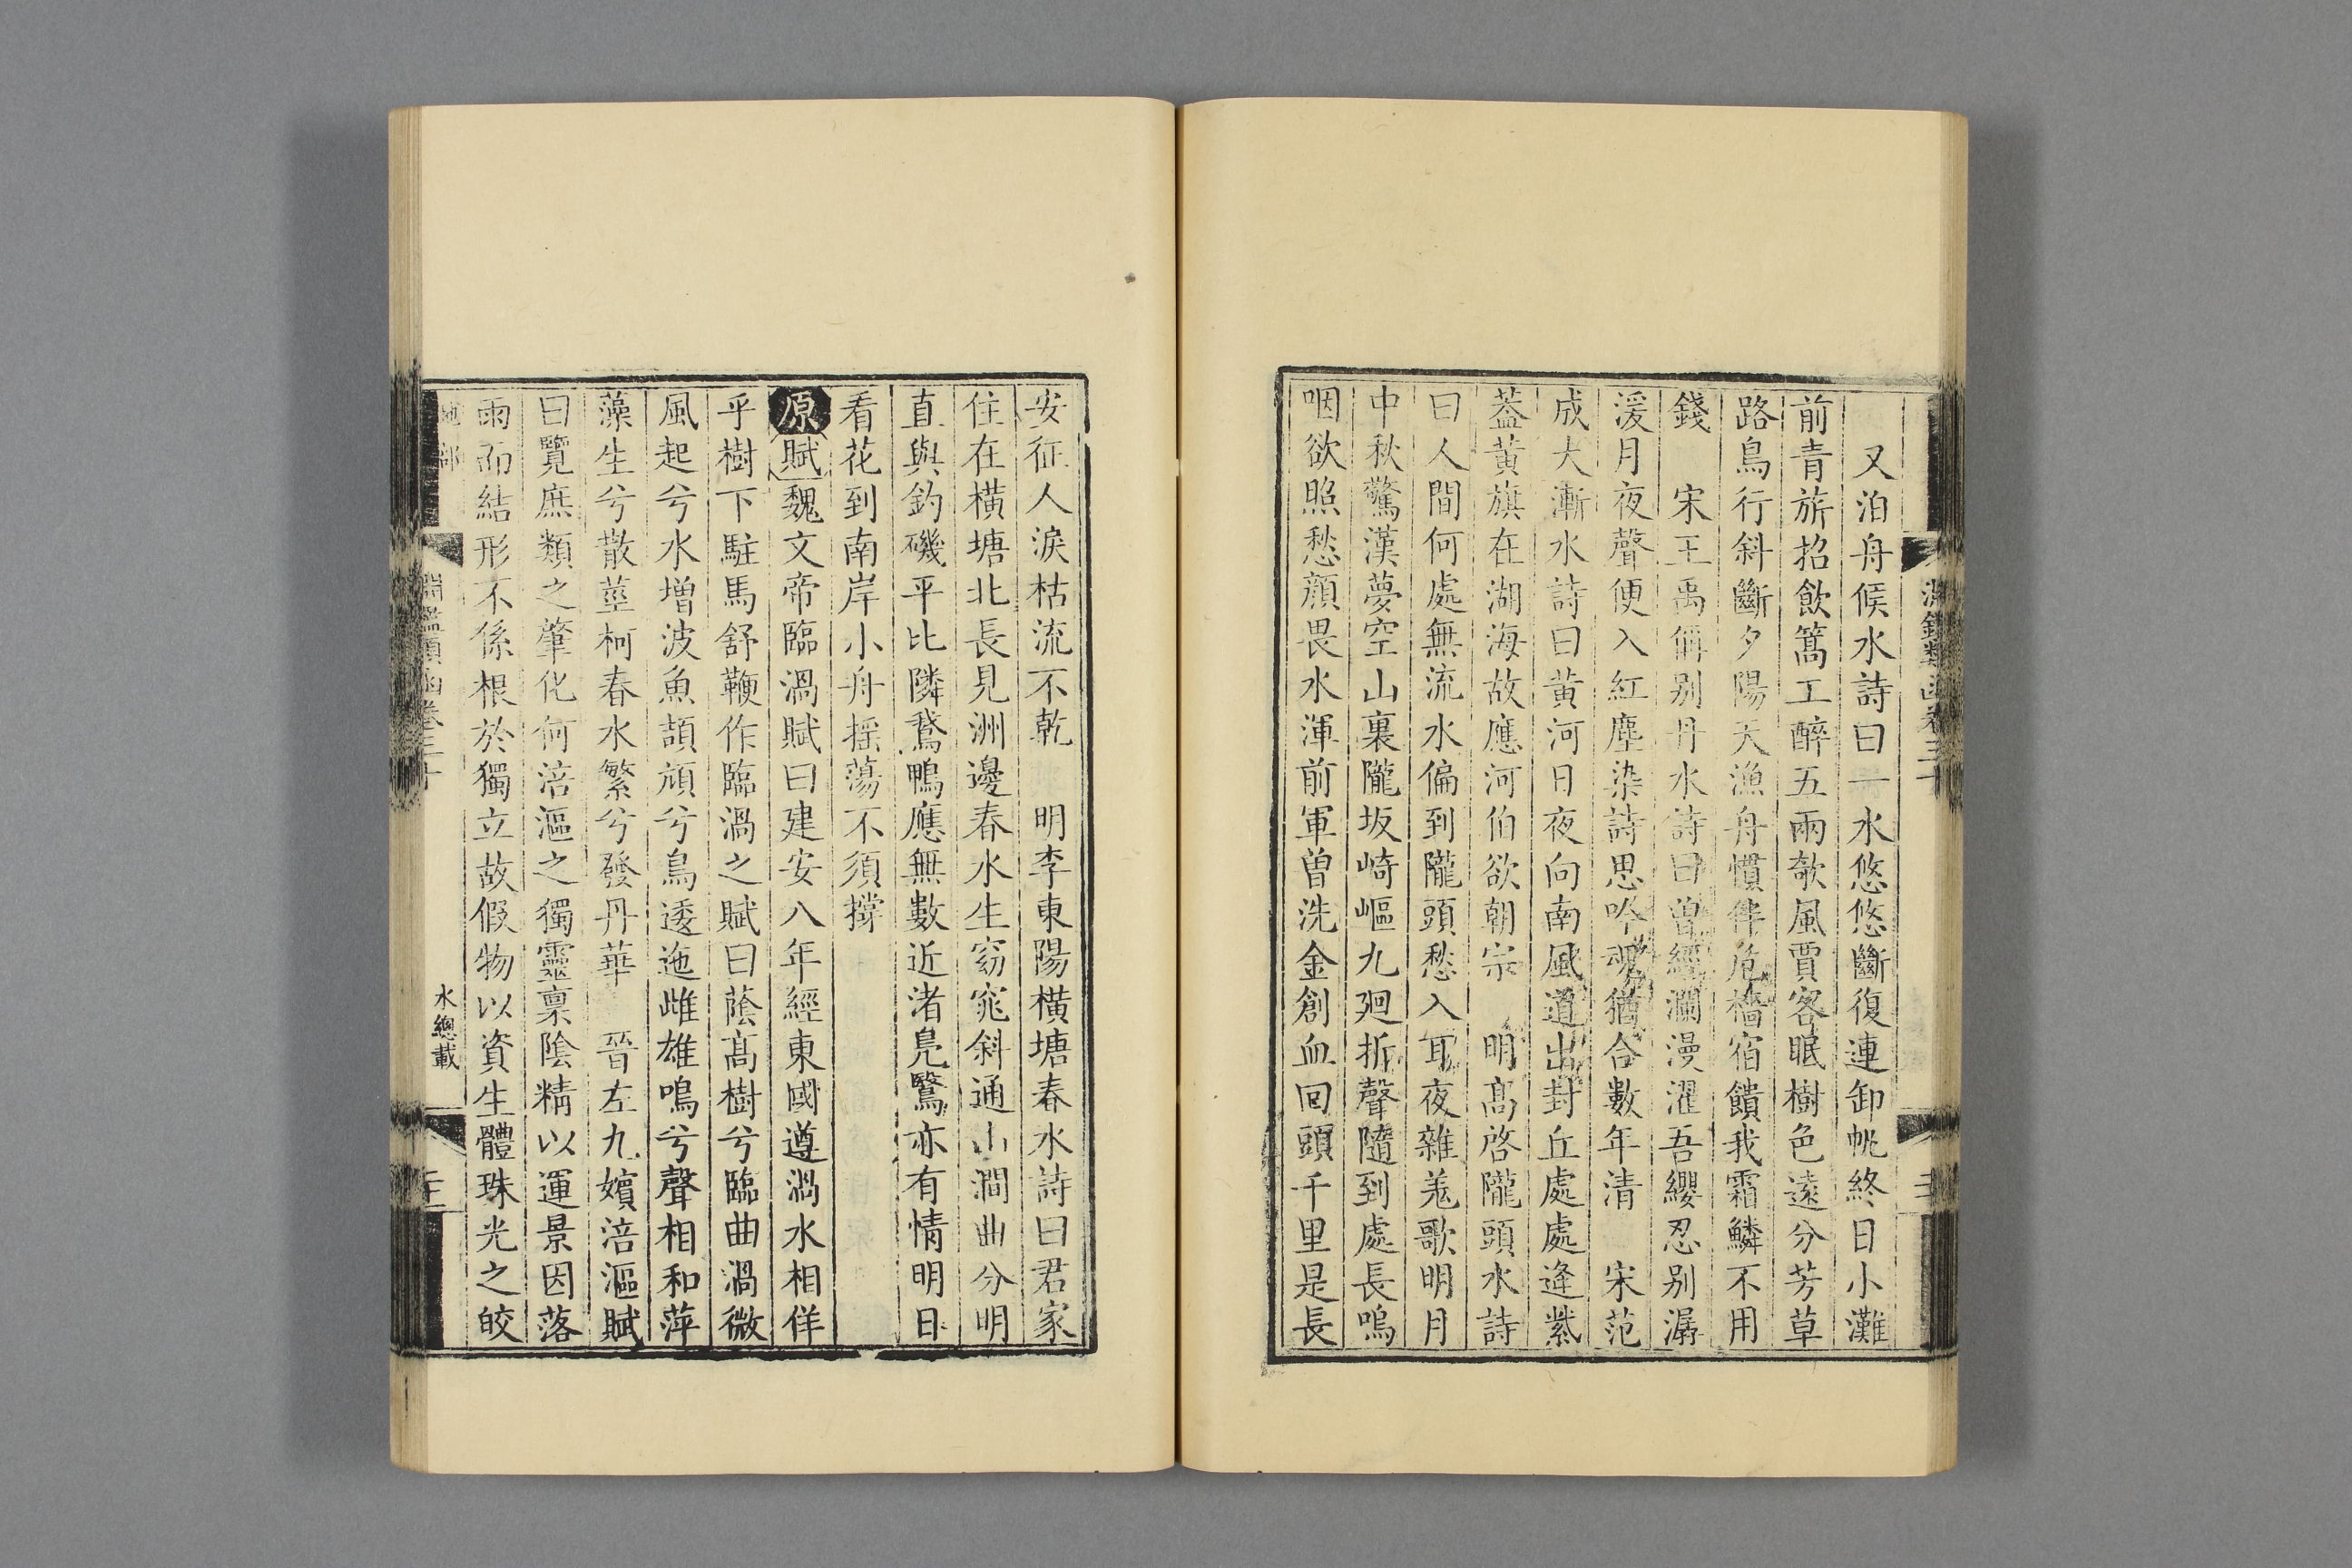 又泊舟候水詩曰一水悠悠斷復連卸帆終日小灘
前青旂招飲篙工醉五兩欹風賈客眠樹色遠分芳草
路鳥行斜斷夕陽天漁舟慣伴危檣宿饋我霜鱗不用
錢　宋王禹偁别丹水詩曰曽經瀾漫濯吾纓忍别潺
湲月夜聲便入紅塵染詩思吟魂猶合數年清　宋范
成大漸水詩曰黄河日夜向南風道出封丘處處逢紫
葢黄旗在湖海故應河伯欲朝宗　明髙啓隴頭水詩
曰人間何處無流水偏到隴頭愁入耳夜雜羗歌明月
中秋驚漢夢空山裏隴坂崎嶇九廻折聲隨到處長鳴
咽欲照愁顔畏水渾前軍曽洗金創血回頭千里是長
安征人淚枯流不乾　明李東陽横塘春水詩曰君家
住在横塘北長見洲邊春水生窈窕斜通山澗曲分明
直與釣磯平比隣鵞鴨應無數近渚鳧鷖亦有情明日
看花到南岸小舟揺蕩不須撐
原賦魏文帝臨渦賦曰建安八年經東國遵渦水相佯
乎樹下駐馬舒鞭作臨渦之賦曰蔭髙樹兮臨曲渦微
風起兮水增波魚頡頏兮鳥逶迤雌雄鳴兮聲相和萍
藻生兮散莖柯春水繁兮發丹華　晉左九嬪涪漚賦
曰覽庶類之肇化何涪漚之獨靈稟陰精以運景因落
雨而結形不係根於獨立故假物以資生體珠光之皎
淵鑑類函卷三十
水總載